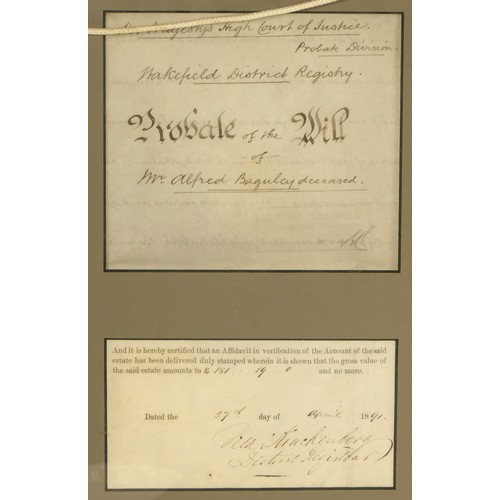 Majesty's High Court of Justice.
Probate Division.
Wakefield District Registry.
Probate of the Will
— of —
Mr. Alfred Baguley deceased.
And it is hereby certified that an Affidavit in verification of the Account of the said
estate has been delivered duly stamped wherein it is shown that the gross value of
the said estate amounts to £ 181 - 19 - 0 and no more.
Dated the 27th day of April 1891.
District Registrar